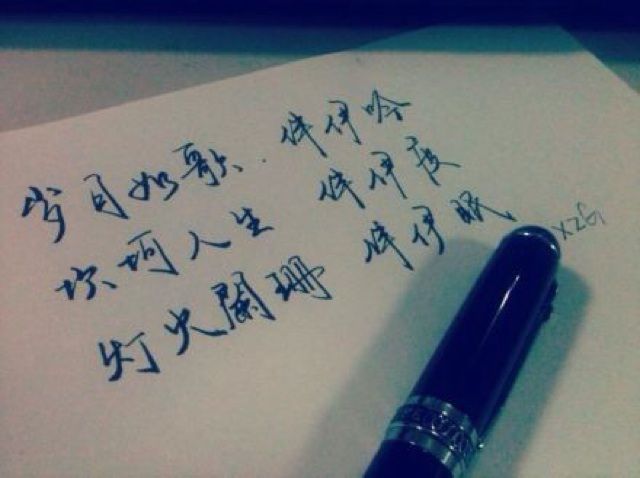 岁月如歌.伴伊吟
坎坷人生 伴伊度
灯火阑珊 伴伊眠
XZG